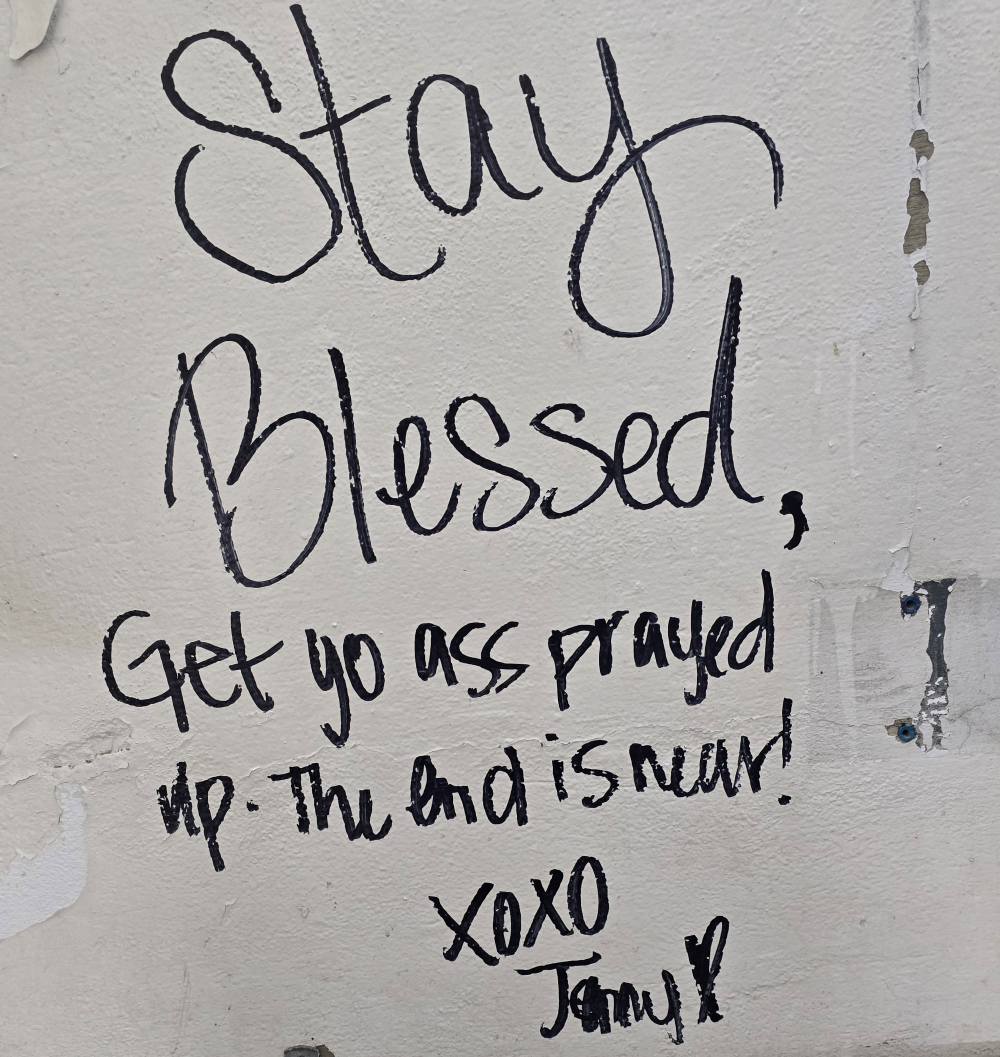 Stay
Blessed,
Get yo ass prayed
up. The End is near!
XOXO
Jenny